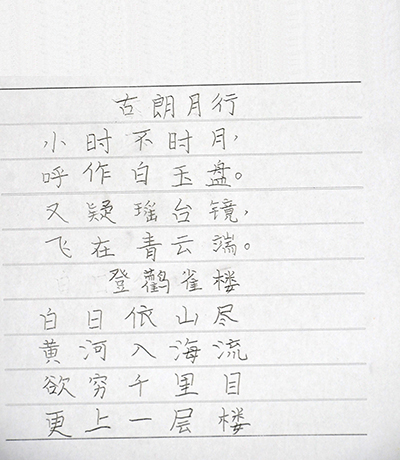 古朗月行
小时不时月，
呼作白玉盘。
又疑瑶台镜，
飞在青云端。
登鹳雀楼
白日依山尽
黄河入海流
欲穷千里目
更上一层楼